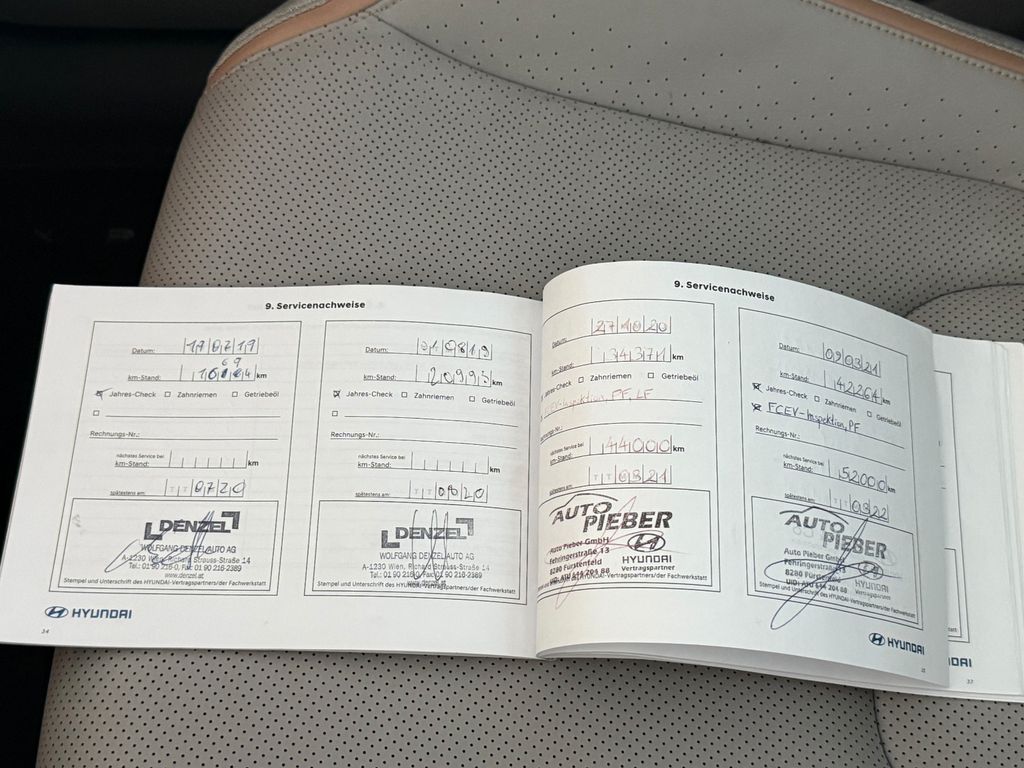 9. Servicenachweise
Datum: 170719
km-Stand: km
Jahres-Check Zahnriemen Getriebeöl
Rechnungs-Nr.:
nächstes Service bei
km-Stand: km
spätestens am: TT0720
DENZEL
WOLFGANG DENZEL AUTO AG
A-1230 Wien, Richard Strauss-Straße 14
www.denzel.at
Stempel und Unterschrift des HYUNDAI-Vertragspartners/der Fachwerkstatt
HYUNDAI
34
Datum: 0819
km-Stand: km
Jahres-Check Zahnriemen Getriebeöl
Rechnungs-Nr.:
nächstes Service bei
km-Stand: km
spätestens am: TT0820
DENZEL
WOLFGANG DENZEL AUTO AG
A-1230 Wien, Richard Strauss-Straße 14
Tel.: 01 90 216-0, Fax: 01 90 216-2389
www.denzel.at
Stempel und Unterschrift des HYUNDAI-Vertragspartners/der Fachwerkstatt
9. Servicenachweise
Datum: 271020
34371 km
Jahres-Check Zahnriemen Getriebeöl
FCEV-Inspektion, PF, LF
nächstes Service bei
km-Stand: 44000 km
spätestens am: TT0321
AUTO PIEBER
Auto Pieber GmbH
Fehringerstraße 13
8280 Fürstenfeld
UID: ATU 644 204 88
HYUNDAI
Vertragspartner
Datum: 090321
km-Stand: 42264 km
Jahres-Check Zahnriemen Getriebeöl
FCEV-Inspektion, PF
Rechnungs-Nr.:
nächstes Service bei
km-Stand: 52000 km
spätestens am: TT0322
AUTO PIEBER
Auto Pieber GmbH
Fehringerstraße 13
8280 Fürstenfeld
UID: ATU 644 204 88
HYUNDAI
Vertragspartner
Stempel und Unterschrift des HYUNDAI-Vertragspartners/der Fachwerkstatt
HYUNDAI
km
km
DAI
37